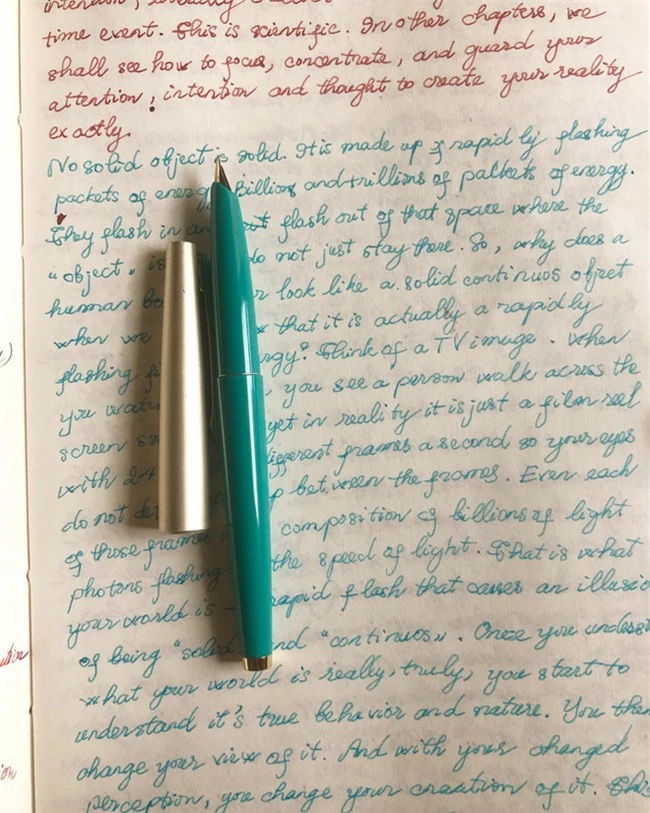 time event. This is scientific. In other chapters, we
shall see how to focus, concentrate, and guard your
attention, intention and thought to create your reality
exactly.
No solid object is solid. It is made up of rapidly flashing
packets of energy. Billions and trillions of packets of energy.
They flash in and out flash out of that space where the
"object" is do not just stay there. So, why does a
human look like a solid continuos object
when we that it is actually a rapidly
flashing Think of a TV image. When
you watch you see a person walk across the
screen yet in reality it is just a film reel
with 24 different frames a second so your eyes
do not between the frames. Even each
of those frames composition of billions of light
photons flashing the speed of light. That is what
your world is rapid flash that causes an
of being "solid" and "continuos". Once you
what your world is really, truly, you start to
understand it's true behavior and nature. You then
change your view of it. And with your changed
perception, you change your creation of it. This